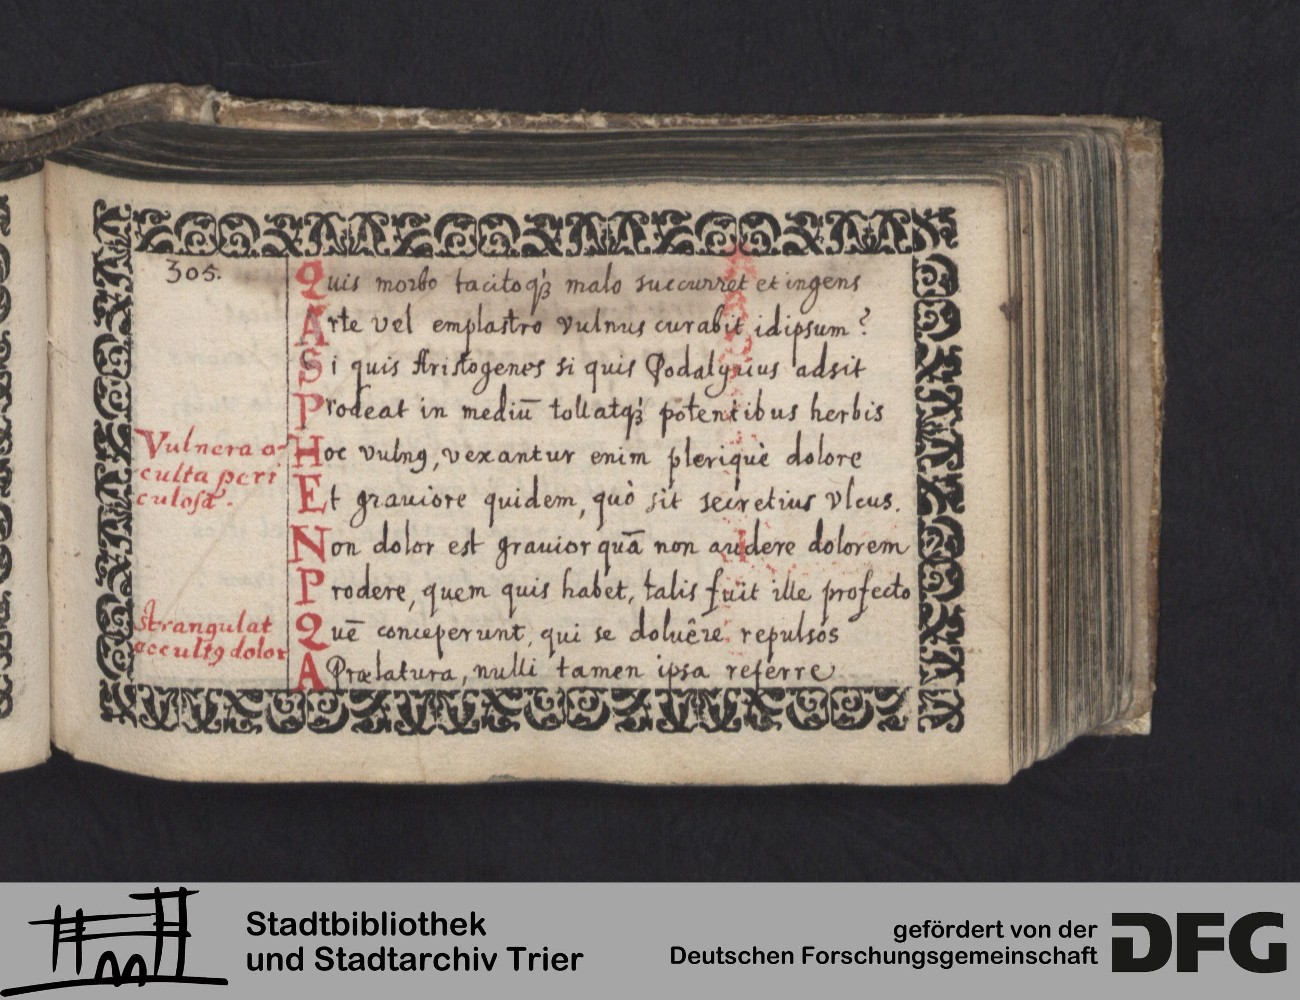 305.
Quis morbo tacitoq₃ malo succurret et ingens
Arte vel emplastro vulnus curabit idipsum?
Si quis Aristogenes si quis Podalyrius adsit
Prodeat in mediū tollatq₃ potentibus herbis
Vulnera o-
culta peri
culosa.
Hoc vulnꝰ, vexantur enim pleriquè dolore
Et grauiore quidem, quò sit secretius vlcus.
Non dolor est grauior quā non audere dolorem
Prodere, quem quis habet, talis fuit ille profecto
strangulat
occultꝰ dolor
Quē conceperunt, qui se doluêre repulsos
A Prælatura, nulli tamen ipsa referre
Stadtbibliothek
und Stadtarchiv Trier
gefördert von der
Deutschen Forschungsgemeinschaft
DFG